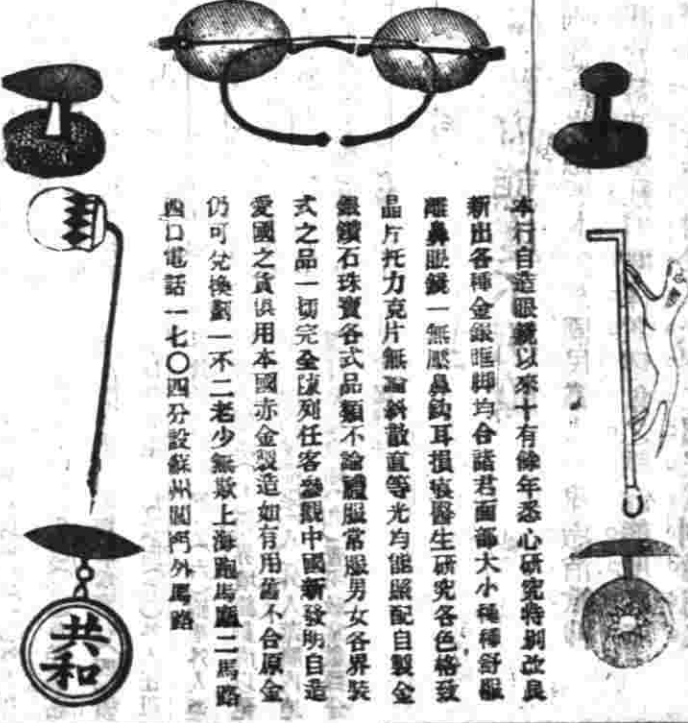 本行自造眼鏡以來十有餘年悉心研究特別改良
新出各種金銀眶脚均合諸君面部大小種種舒服
離鼻眼鏡一無壓鼻鈎耳損痕醫生研究各色格致
晶片托力克片無論斜散直等光均能照配自製金
銀鑽石珠寶各式品類不論禮服常服男女各界裝
式之品一切完全陳列任客參觀中國新發明自造
愛國之貨俱用本國赤金製造如有用舊不合原金
仍可兌換劃一不二老少無欺上海跑馬廳二馬路
西口電話一七〇四分設蘇州閶門外馬路
共和